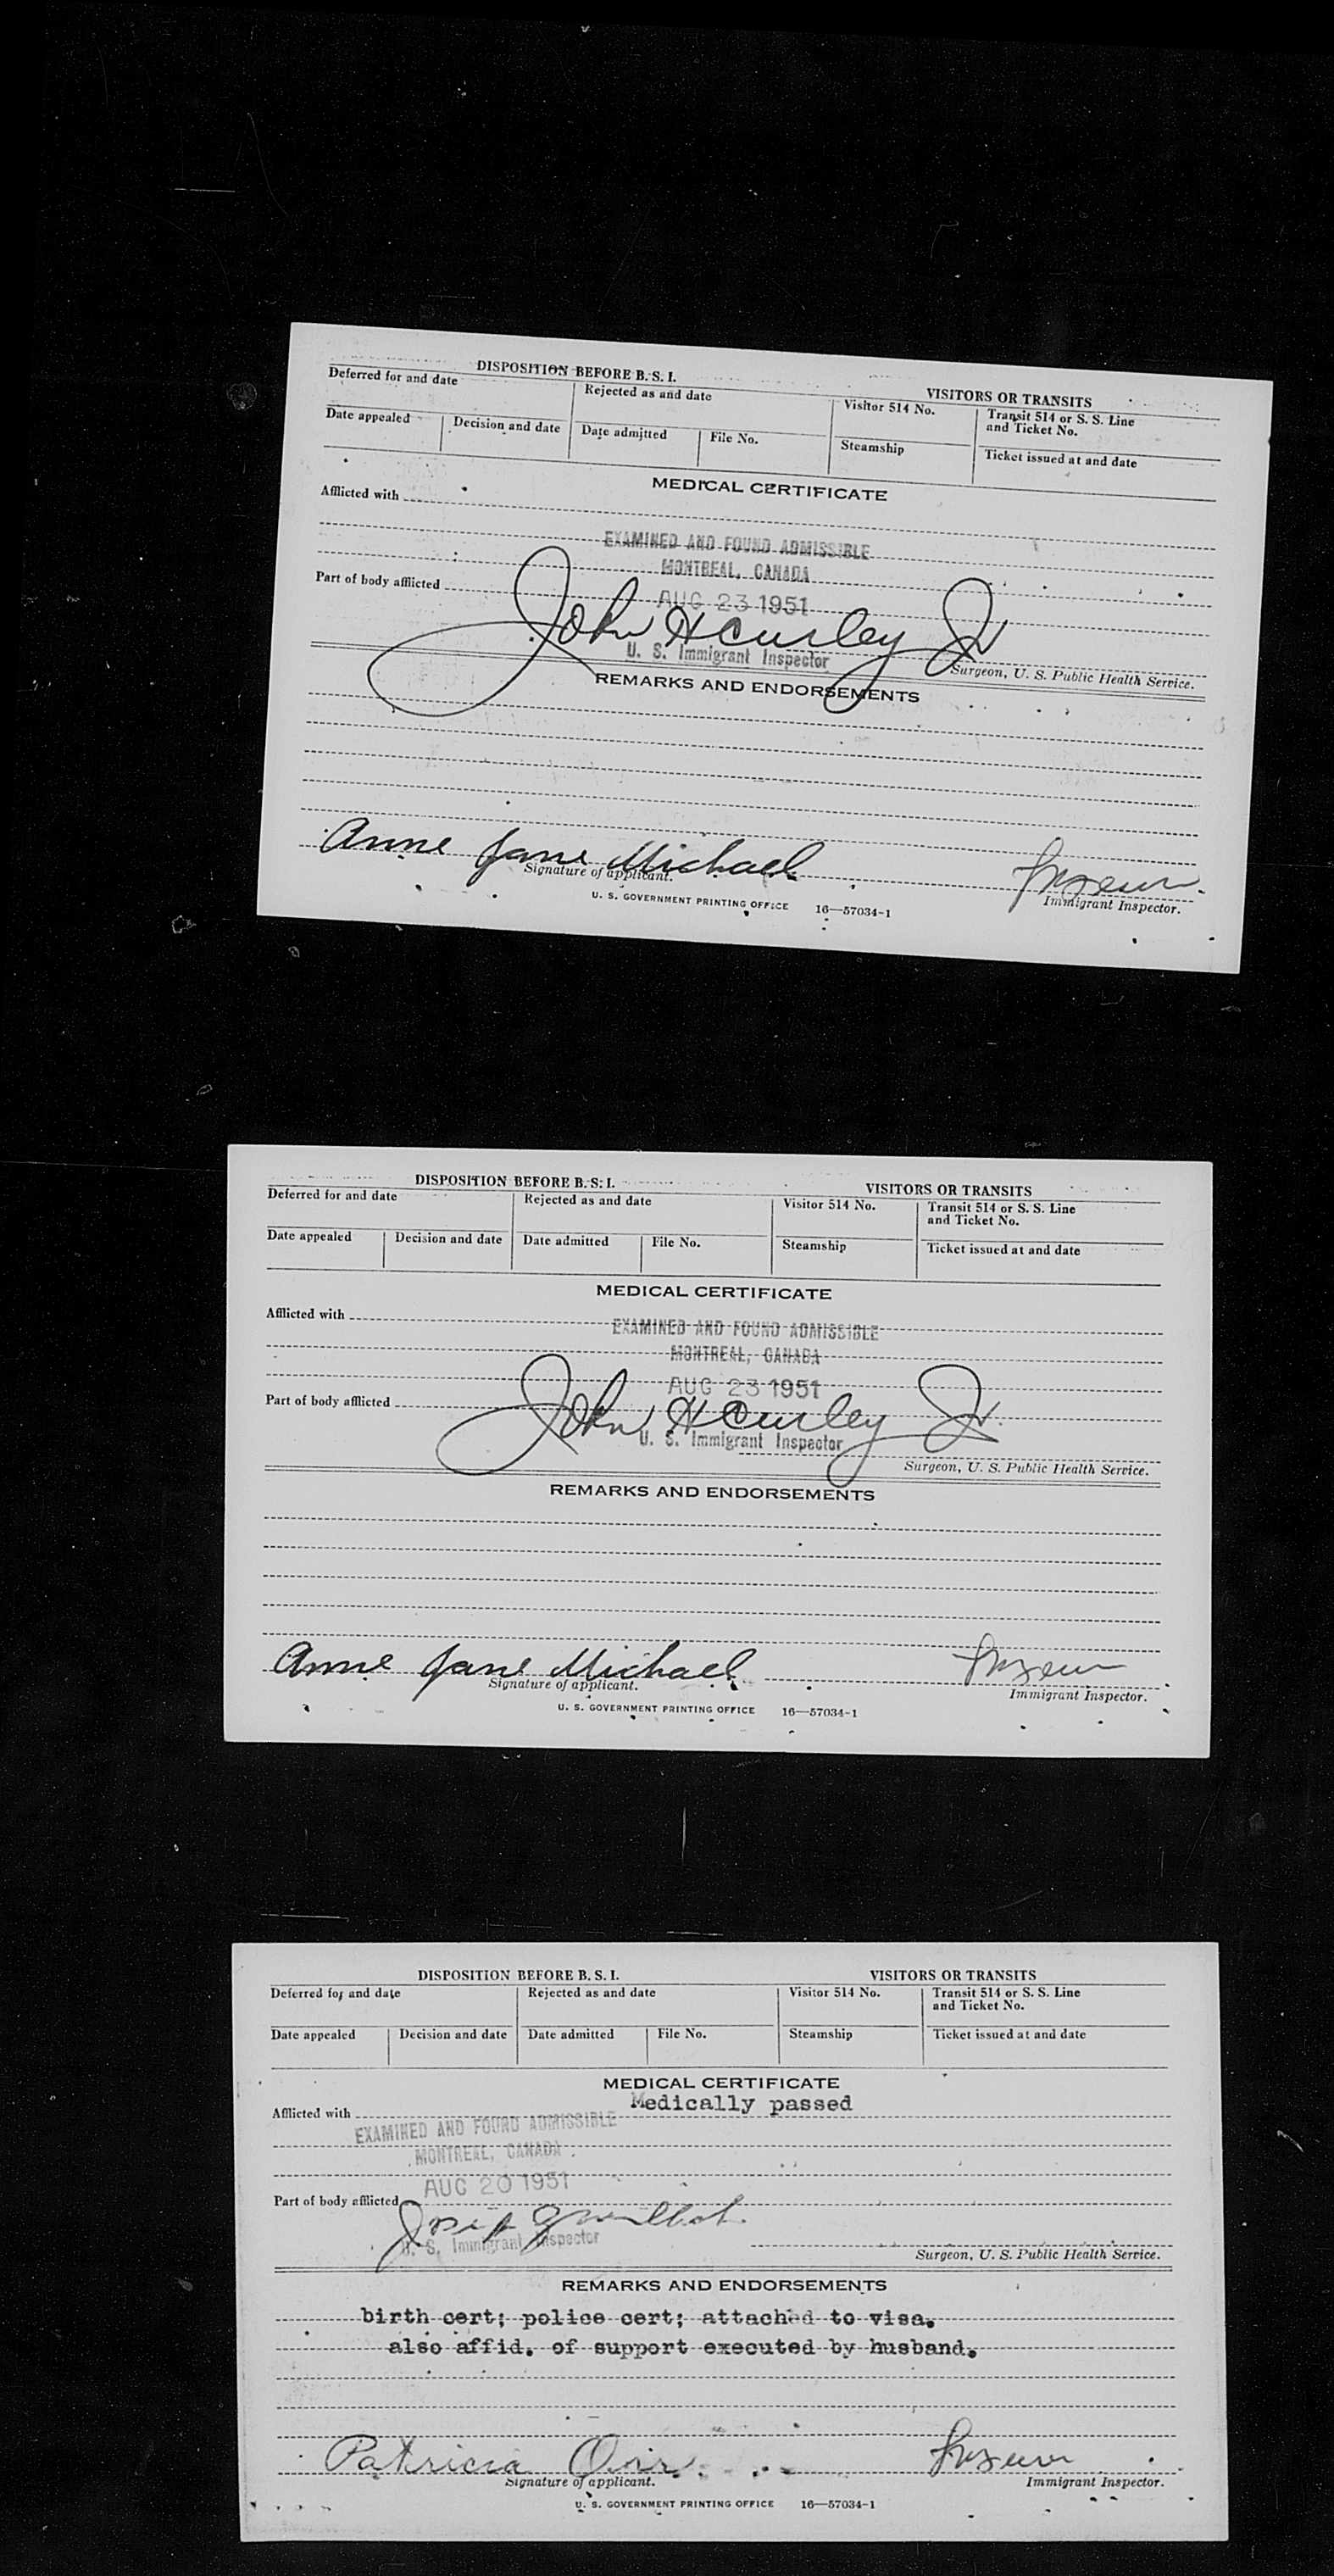 DISPOSITION BEFORE B. S. I.
VISITORS OR TRANSITS
Deferred for and date
Rejected as and date
Visitor 514 No.
Transit 514 or S. S. Line
and Ticket No.
Date appealed
Decision and date
Date admitted
File No.
Steamship
Ticket issued at and date
MEDICAL CERTIFICATE
Afflicted with
EXAMINED AND FOUND ADMISSIBLE
MONTREAL, CANADA
AUG 23 1951
Part of body afflicted
John H Curley Jr
U. S. Immigrant Inspector
Surgeon, U. S. Public Health Service.
REMARKS AND ENDORSEMENTS
Anne Jane Michael
Signature of applicant.
Immigrant Inspector.
U. S. GOVERNMENT PRINTING OFFICE 16—57034-1
DISPOSITION BEFORE B. S. I.
VISITORS OR TRANSITS
Deferred for and date
Rejected as and date
Visitor 514 No.
Transit 514 or S. S. Line
and Ticket No.
Date appealed
Decision and date
Date admitted
File No.
Steamship
Ticket issued at and date
MEDICAL CERTIFICATE
Afflicted with
EXAMINED AND FOUND ADMISSIBLE
MONTREAL, CANADA
AUG 23 1951
Part of body afflicted
John H Curley Jr.
U. S. Immigrant Inspector
Surgeon, U. S. Public Health Service.
REMARKS AND ENDORSEMENTS
Anne Jane Michael
Signature of applicant.
Immigrant Inspector.
U. S. GOVERNMENT PRINTING OFFICE 16—57034-1
DISPOSITION BEFORE B. S. I.
VISITORS OR TRANSITS
Deferred for and date
Rejected as and date
Visitor 514 No.
Transit 514 or S. S. Line
and Ticket No.
Date appealed
Decision and date
Date admitted
File No.
Steamship
Ticket issued at and date
MEDICAL CERTIFICATE
Medically passed
Afflicted with
EXAMINED AND FOUND ADMISSIBLE
MONTREAL, CANADA
AUG 20 1951
Part of body afflicted
U. S. Immigrant Inspector
Surgeon, U. S. Public Health Service.
REMARKS AND ENDORSEMENTS
birth cert; police cert; attached to visa.
also affid. of support executed by husband.
Patricia Orr
Signature of applicant.
Immigrant Inspector.
U. S. GOVERNMENT PRINTING OFFICE 16—57034-1